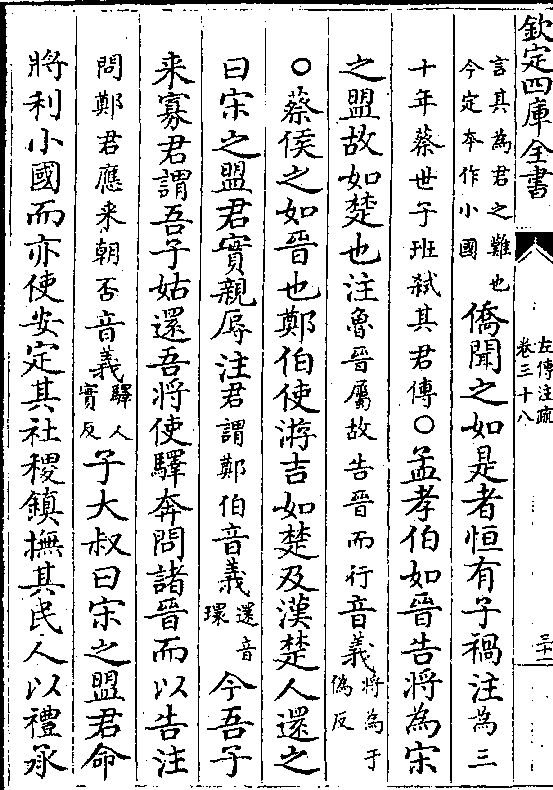 欽定四庫全書
左傳注疏
卷三十八
三十一
言其為君之難也
今定夲作小國
僑聞之如是者恒有子禍注為三
十年蔡世子班弑其君傳○孟孝伯如晉告將為宋
之盟故如楚也注魯晉屬故告晉而行音義將為于
偽反
○蔡侯之如晉也鄭伯使游吉如楚及漢楚人還之
曰宋之盟君實親辱注君謂鄭伯音義還音
環
今吾子
来寡君謂吾子姑還吾將使驛奔問諸晉而以告注
問鄭君應来朝否音義驛人
實反
子大叔曰宋之盟君命
將利小國而亦使安定其社稷鎮撫其民人以禮承